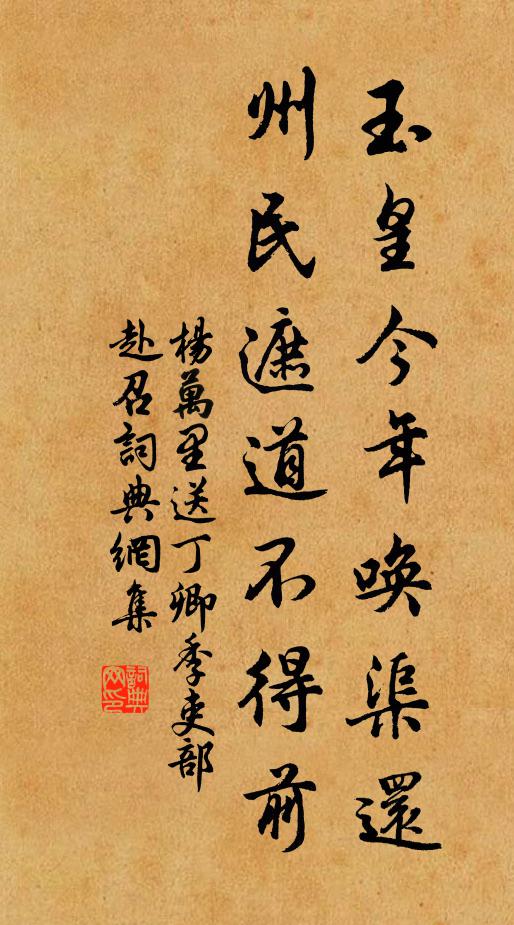 玉皇今年唤渠還
州民遮道不得前
楊萬里送丁卿季吏部
赴召詞典網集
詞典网印